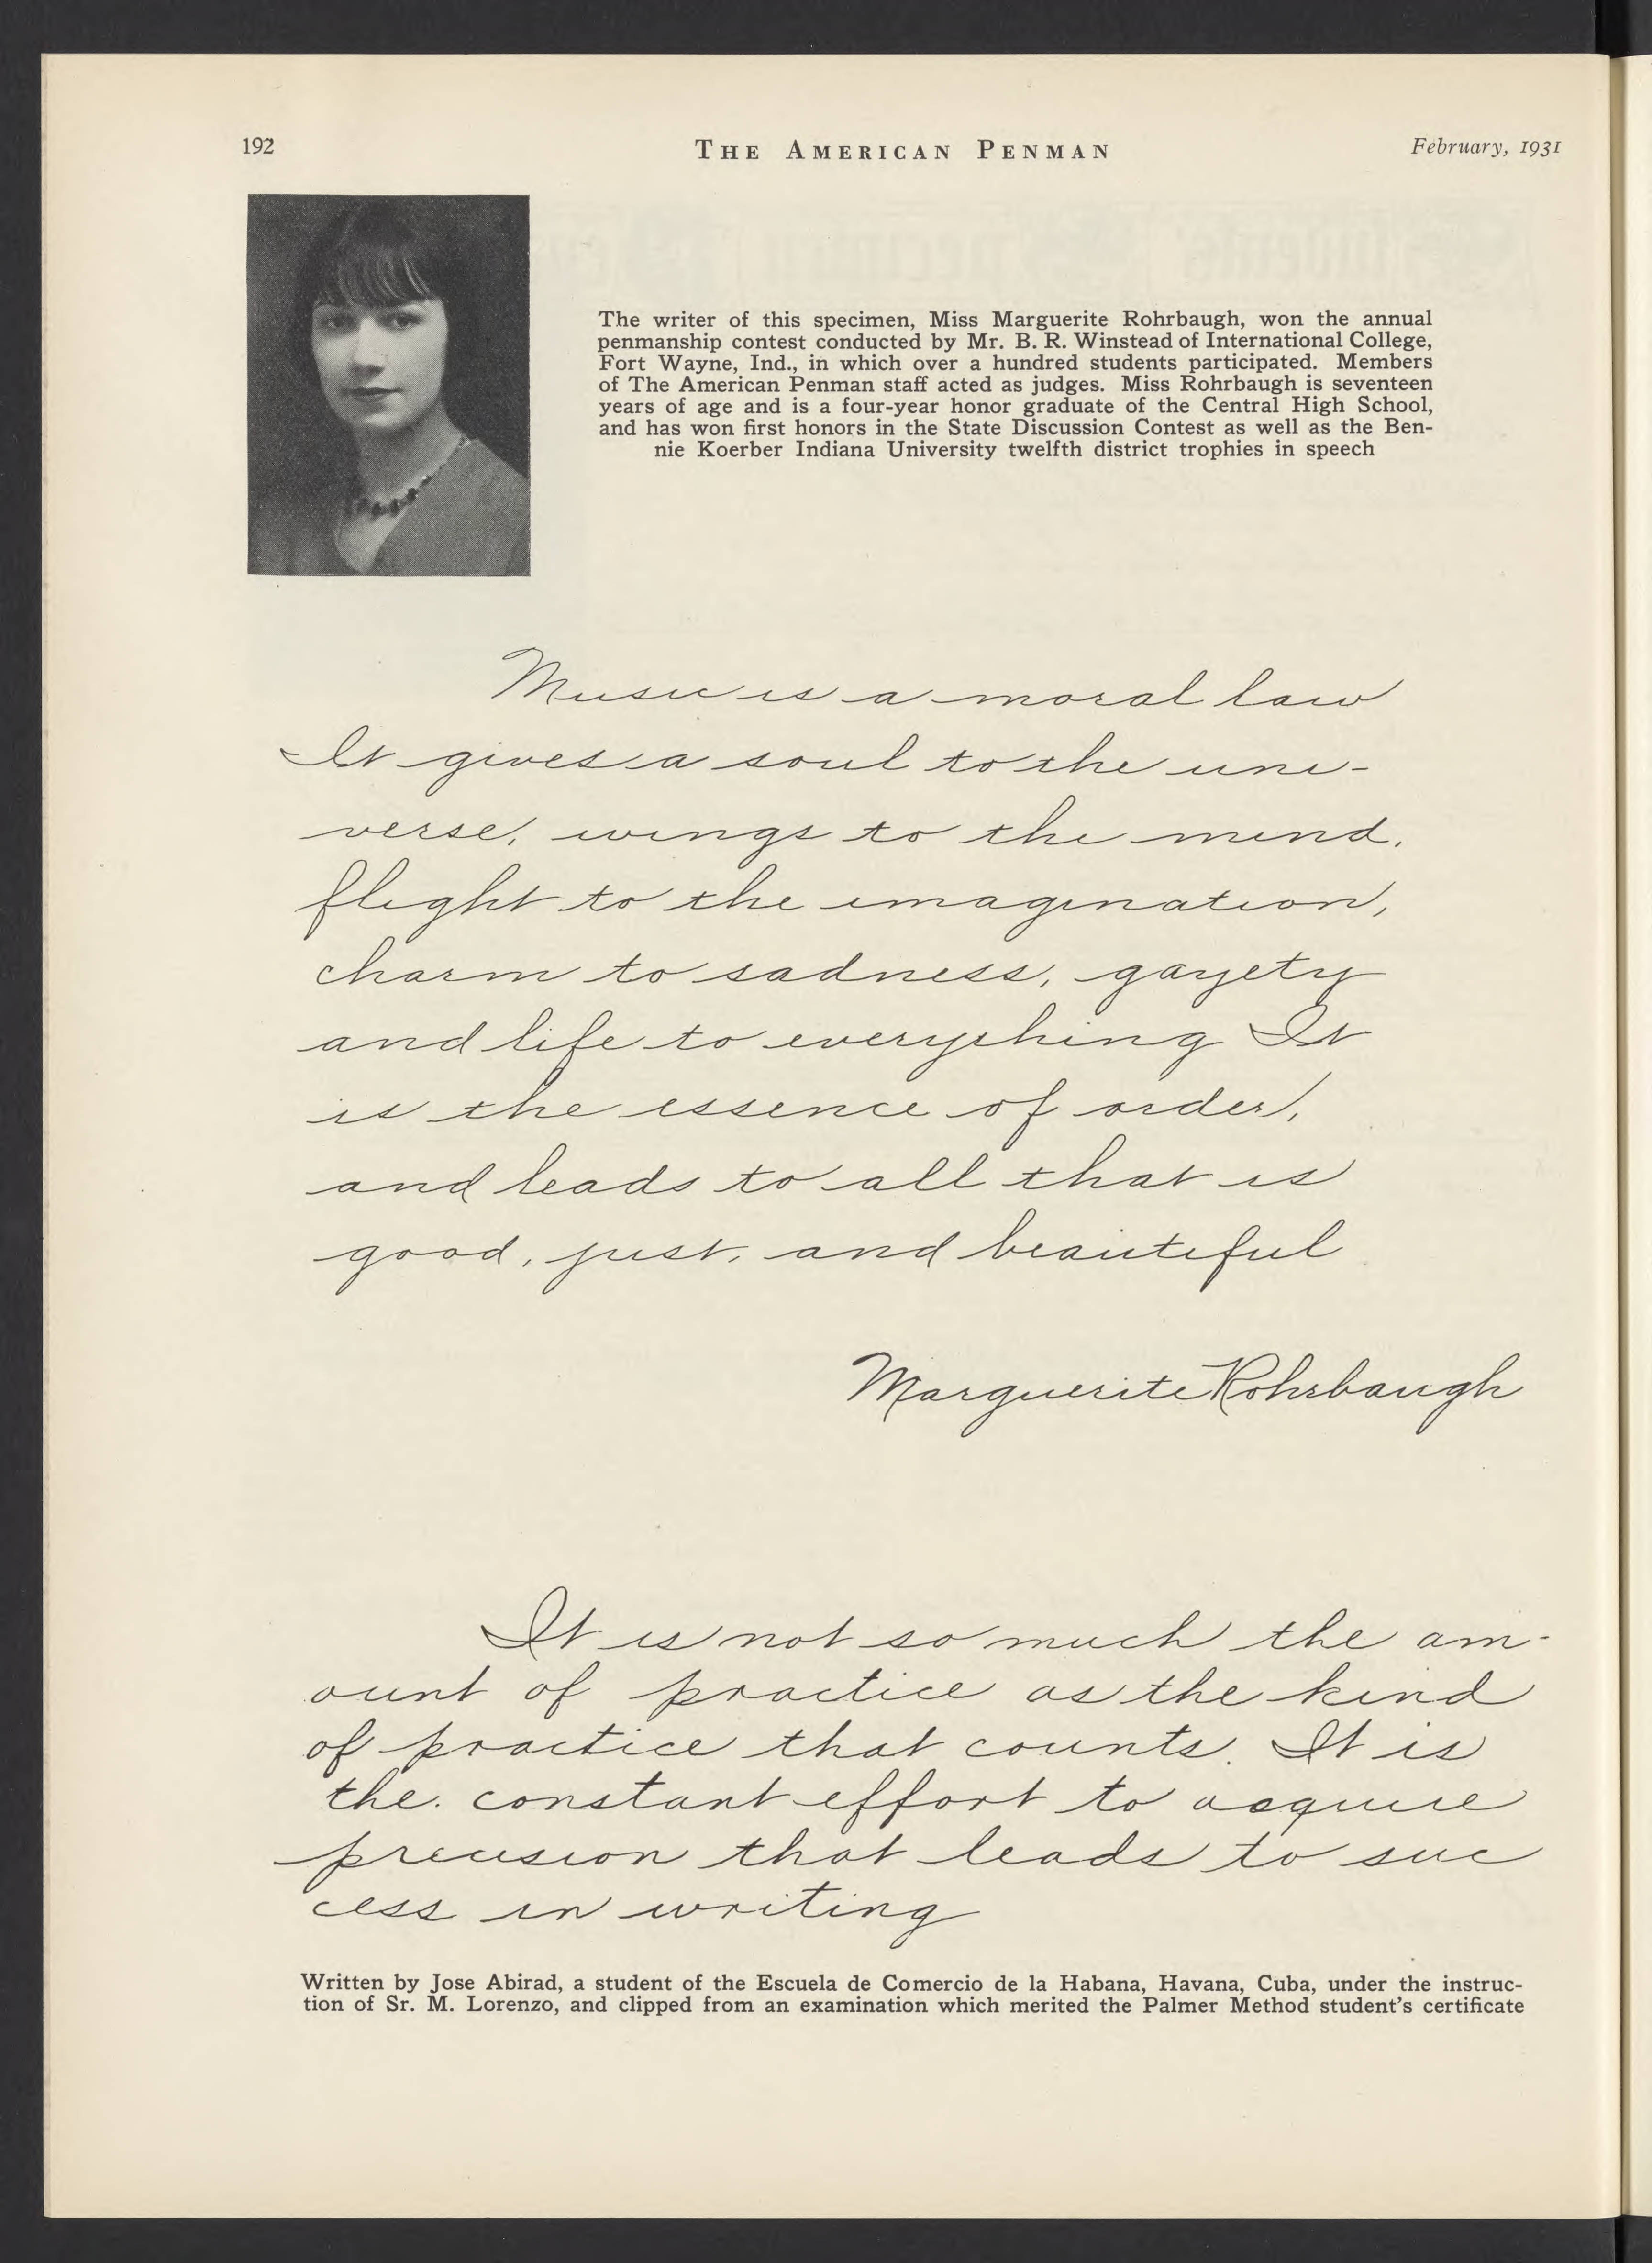 192
THE AMERICAN PENMAN
February, 1931
The writer of this specimen, Miss Marguerite Rohrbaugh, won the annual
penmanship contest conducted by Mr. B. R. Winstead of International College,
Fort Wayne, Ind., in which over a hundred students participated. Members
of The American Penman staff acted as judges. Miss Rohrbaugh is seventeen
years of age and is a four-year honor graduate of the Central High School,
and has won first honors in the State Discussion Contest as well as the Ben-
nie Koerber Indiana University twelfth district trophies in speech
Music is a moral law
It gives a soul to the uni-
verse, wings to the mind,
flight to the imagination,
charm to sadness, gayety
and life to everything It
is the essence of order,
and leads to all that is
good, just, and beautiful
Marguerite Rohrbaugh
It is not so much the am-
ount of practice as the kind
of practice that counts. It is
the constant effort to acquire
precision that leads to suc
cess in writing
Written by Jose Abirad, a student of the Escuela de Comercio de la Habana, Havana, Cuba, under the instruc-
tion of Sr. M. Lorenzo, and clipped from an examination which merited the Palmer Method student's certificate